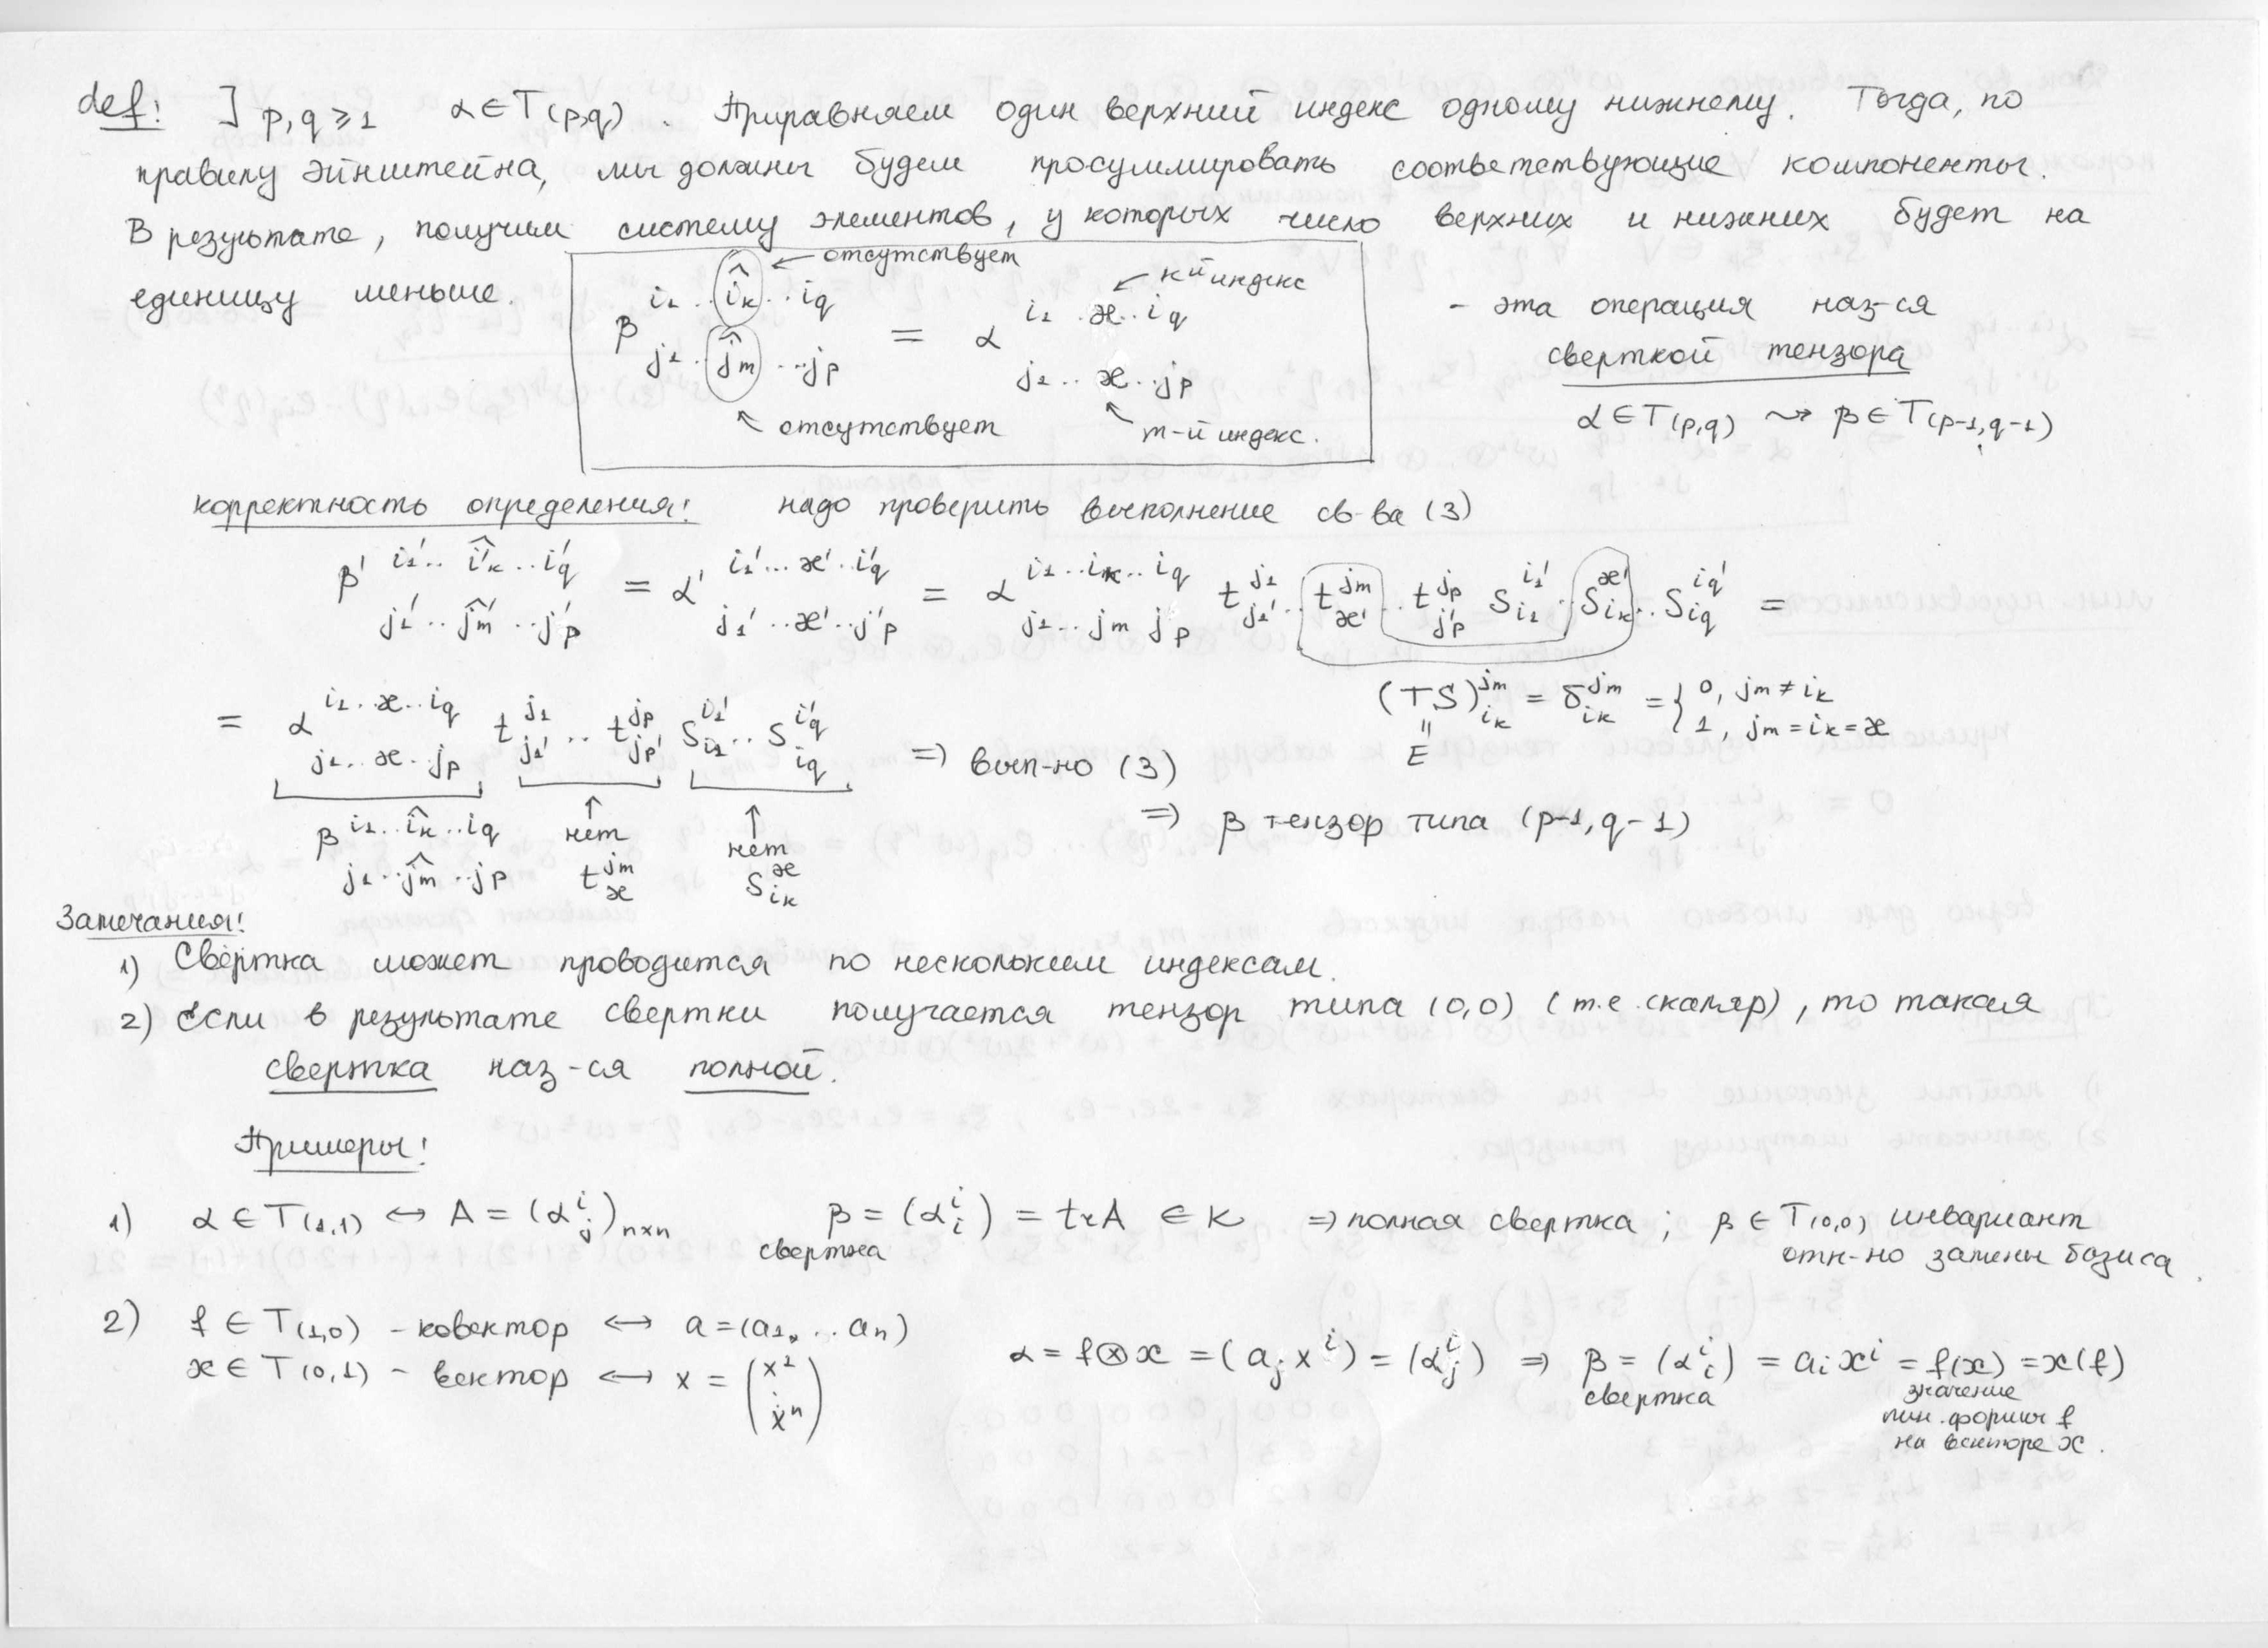 def: ] p, q ⩾ 1 α ∈ T(p,q). Приравняем один верхний индекс одному нижнему. Тогда, по
правилу Эйнштейна, мы должны будем просуммировать соответствующие компоненты.
В результате, получим систему элементов, у которых число верхних и нижних будет на
единицу меньше.
← отсутствует
← к-й индекс
β^{i₁..î_k..i_q}_{j₁..ĵ_m..j_p} = α^{i₁..æ..i_q}_{j₁..æ..j_p}
↖ отсутствует
↖ m-й индекс.
- эта операция наз-ся
сверткой тензора
α ∈ T(p,q) ⇝ β ∈ T(p-1,q-1)
корректность определения! надо проверить выполнение св-ва (3)
β'^{i₁'..î_k'..i_q'}_{j₁'..ĵ_m'..j_p'} = α'^{i₁'...æ'..i_q'}_{j₁'..æ'..j_p'} = α^{i₁..i_k..i_q}_{j₁..j_m j_p} t^{j₁}_{j₁'}..t^{j_m}_{æ'}..t^{j_p}_{j_p'} S^{i₁'}_{i₁}..S^{æ'}_{i_k}..S^{i_q'}_{i_q} =
(TS)^{j_m}_{i_k} = δ^{j_m}_{i_k} = { 0, j_m ≠ i_k
1, j_m = i_k = æ
=
E
= α^{i₁..æ..i_q}_{j₁..æ..j_p} t^{j₁}_{j₁'}..t^{j_p}_{j_p'} S^{i₁'}_{i₁}..S^{i_q'}_{i_q} ⇒ вып-но (3)
⇒ β тензор типа (p-1, q-1)
β^{i₁..î_k..i_q}_{j₁..ĵ_m..j_p}
↑ нет t^{j_m}_{æ}
↑ нет S^{æ}_{i_k}
Замечания!
1) Свёртка может проводится по нескольким индексам.
2) Если в результате свертки получается тензор типа (0,0) (т.е. скаляр), то такая
свертка наз-ся полной.
Примеры!
1) α ∈ T(1,1) ↔ A = (α^i_j)_{n×n} β = (α^i_i) = tr A ∈ K ⇒ полная свертка; β ∈ T(0,0) инвариант
свертка
отн-но замены базиса.
2) f ∈ T(1,0) - ковектор ↔ a = (a₁, .. a_n)
x ∈ T(0,1) - вектор ↔ x = (x¹ ⋮ xⁿ)
α = f ⊗ x = (a_j x^i) = (α^i_j) ⇒ β = (α^i_i) = a_i x^i = f(x) = x(f)
свертка
значение
лин. формы f
на векторе x.